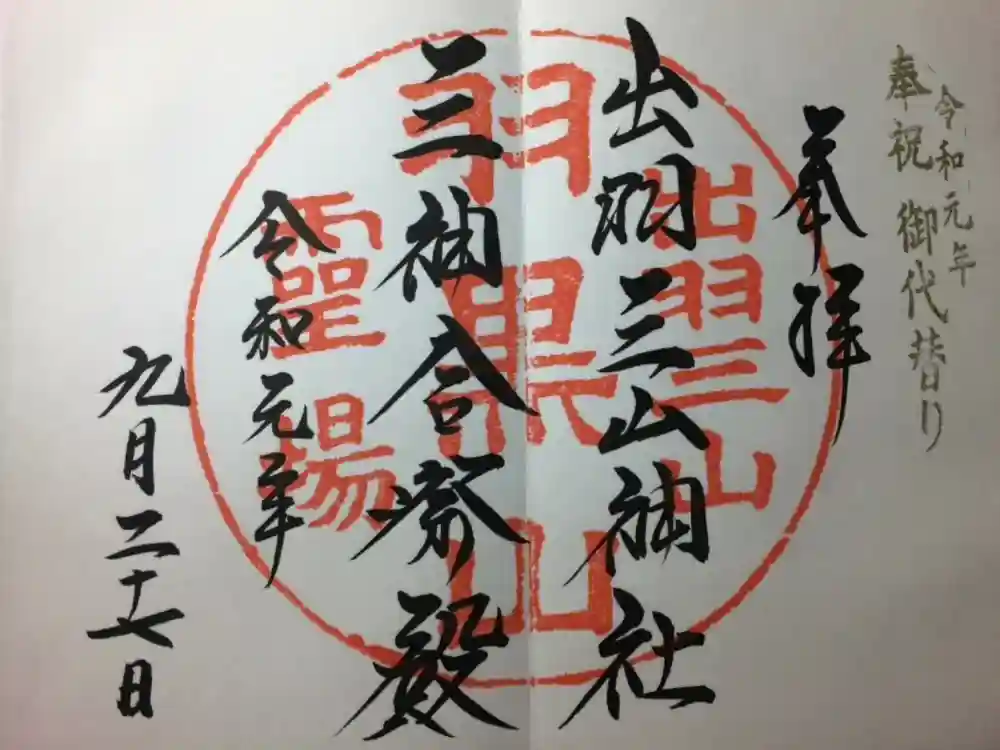 令和元年
奉祝 御代替り
奉拝
出羽三山神社
三神合祭殿
令和元年
九月二十七日
出羽三山
羽黒山
霊場